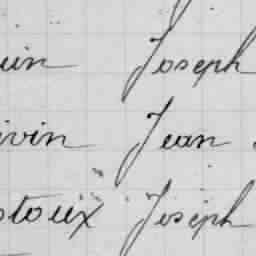 uin Joseph
ivin Jean
stoux Joseph